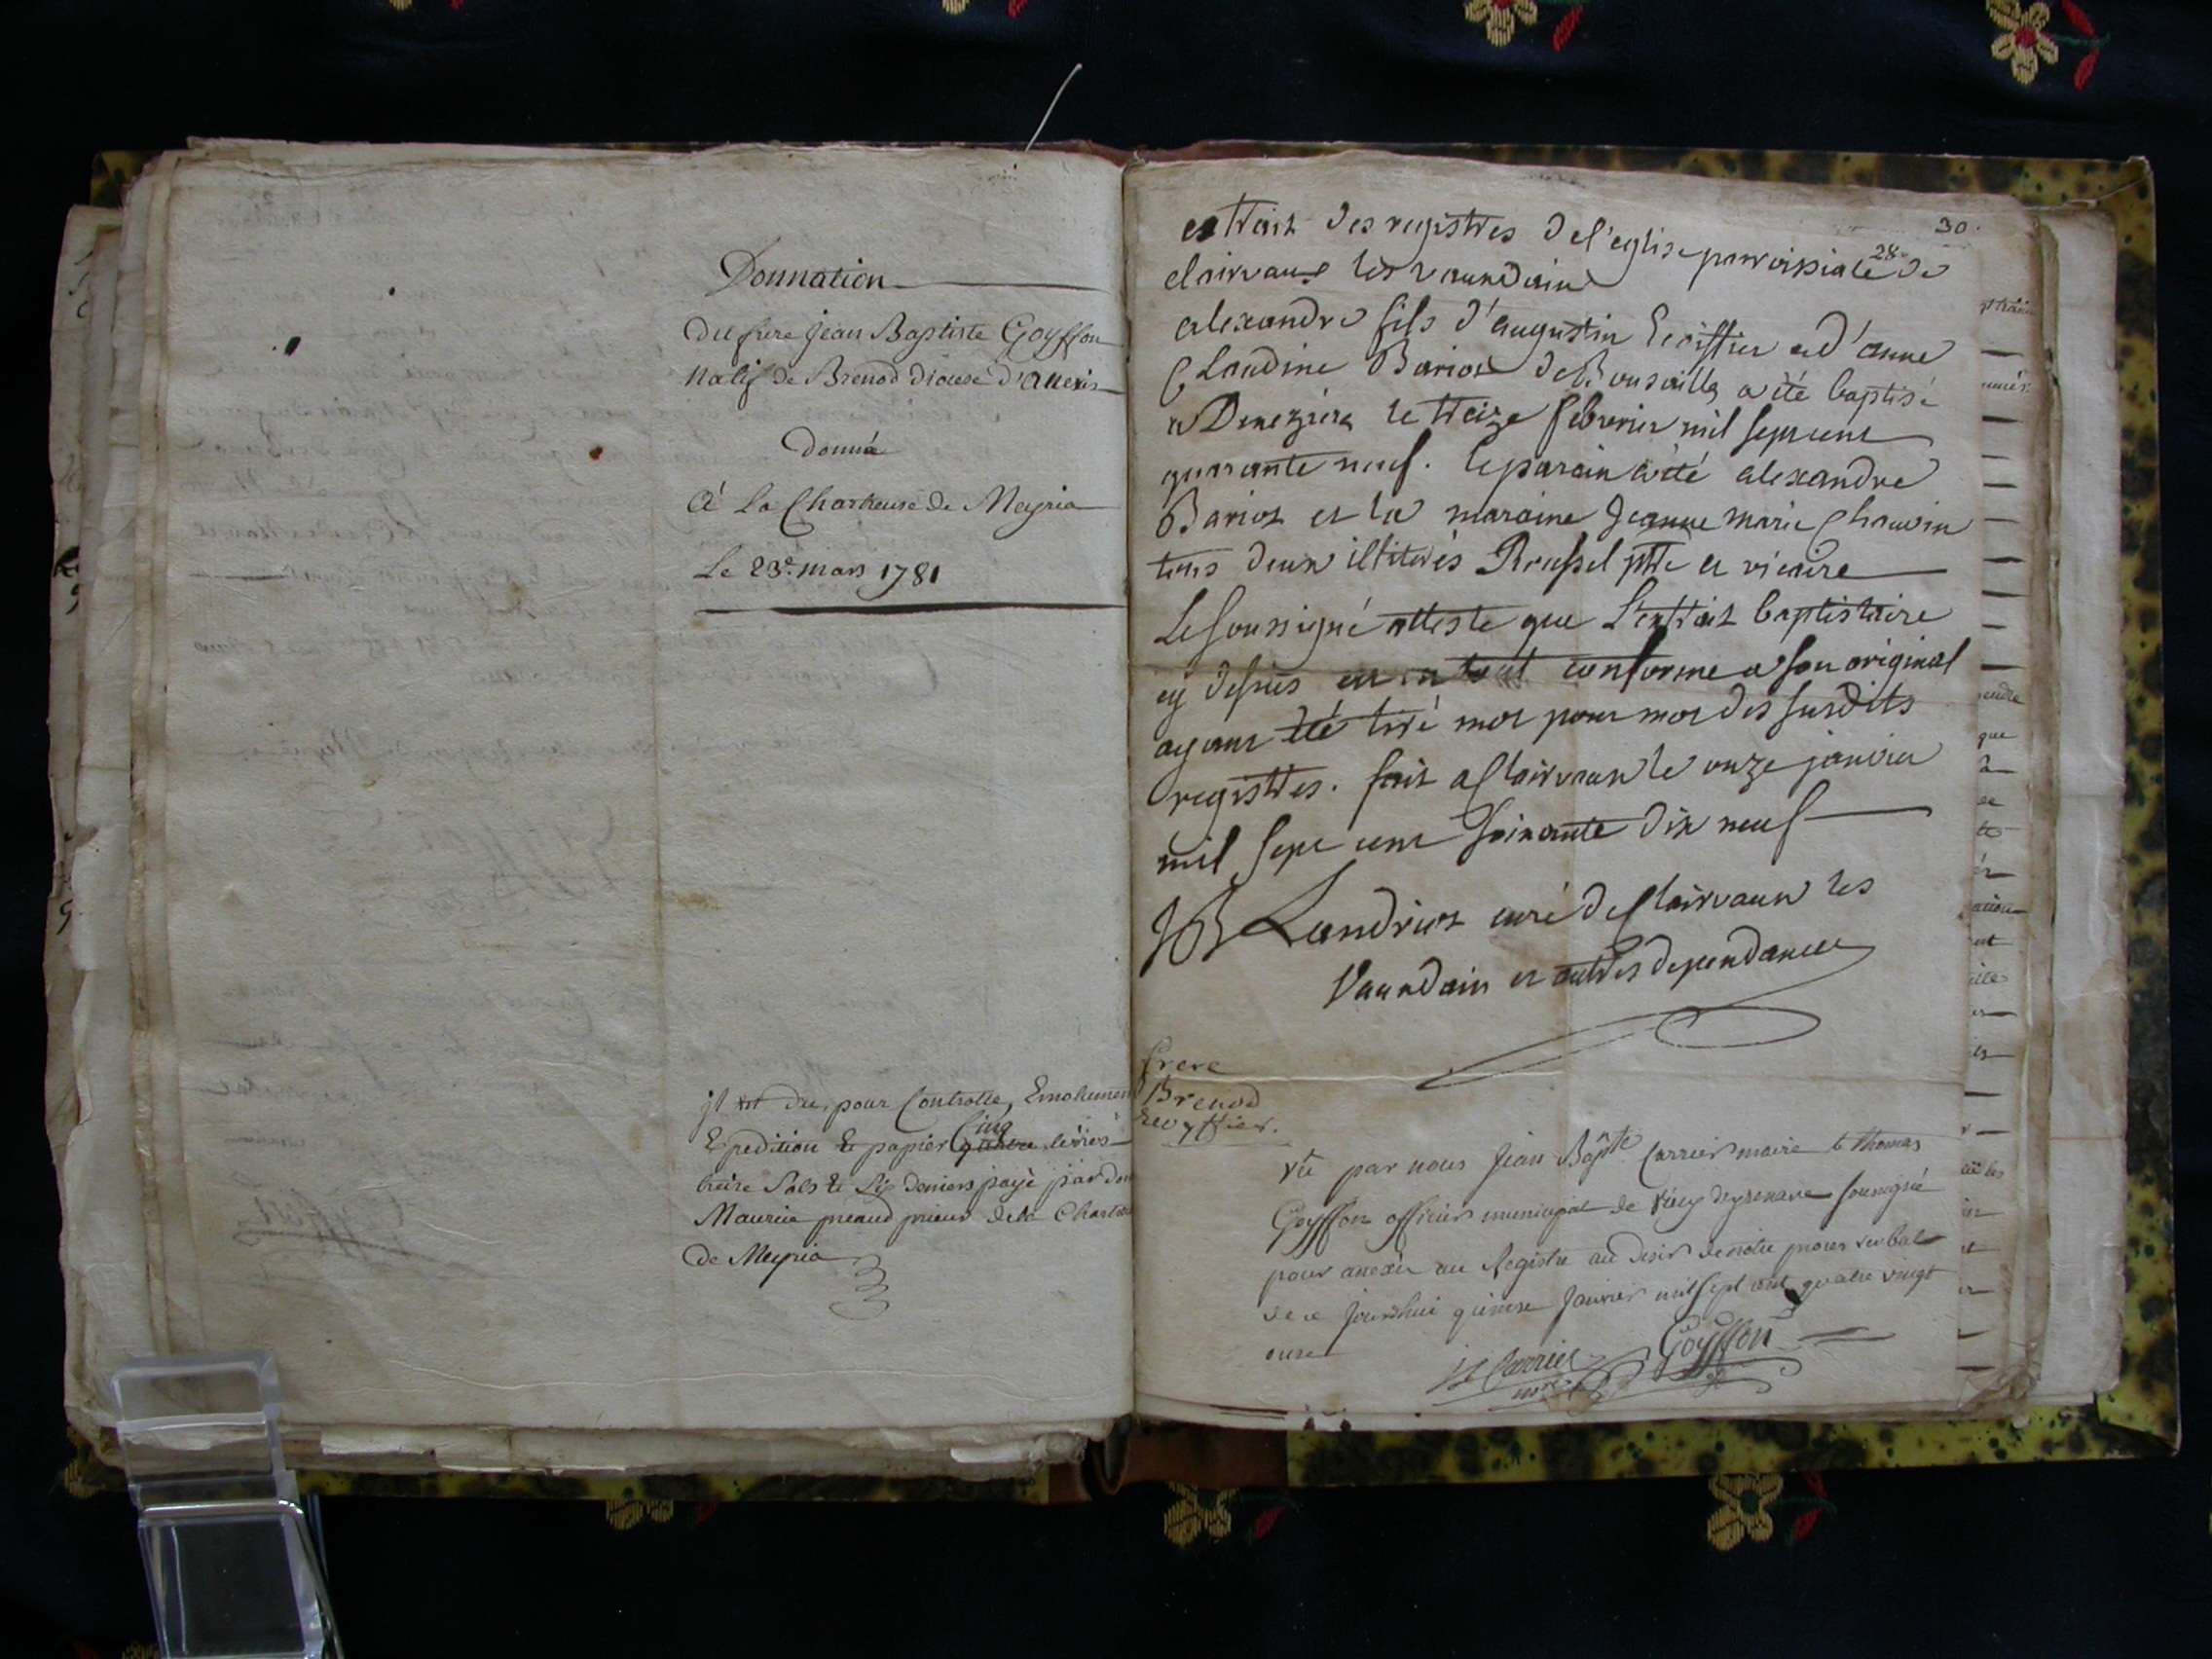 Donnation
du frere Jean Baptiste Goyffon
Natif de Brenod diocese d'Anexis
Donné
à La Chartreuse de Meyria
Le 23e. mars 1781
jl est du, pour Controlle, Emolumen
Expedition & papier Cinq quatre livres
treize Sols & Six deniers payé par don
Maurice preaud prieur de la Chartreu
de Meyria
30.
28.
extrait des registres de l'eglise parroissiale de
clairvaux les vauxdain
alexandre fils d'augustin Recoiffier et d'anne
Claudine Bariot de Bonsailla a été baptisé
a Denezieres le treize febvrier mil sept cent
quarante neuf. le parain a été alexandre
Bariot et la maraine Jeanne marie Chauvin
tous deux illiterés Roussel ptre et vicaire
Le soussigné atteste que L'extrait baptistaire
cy dessus est en tout conforme a son original
ayant été tiré mot pour mot des susdits
registres. fait a Clairvaux le onze janvier
mil sept cent soixante dix neuf
JB Landriot curé de Clairvaux les
Vauxdain et autres dependances
frere
Brenod
Recoyffier.
vû par nous Jean Bapte Carrier maire & thomas
Goyffon officier municipal de vieu dyzenave soussigné
pour anexér au Registre au desir de notre proces verbal
de ce jourdhui quinze Janvier mil sept cent quatre vingt
onze
Carrier
Goyffon